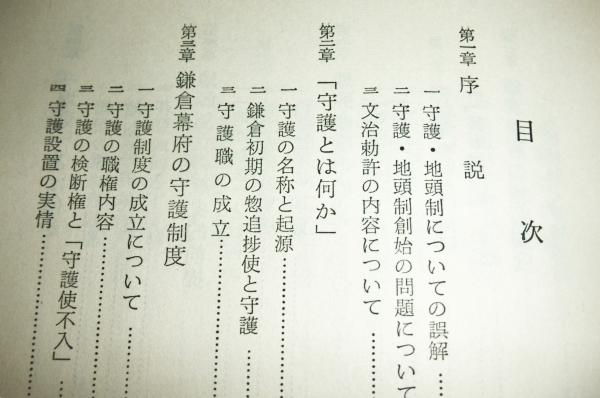 目次
第一章 序説
一 守護・地頭制についての誤解……
二 守護・地頭制創始の問題について
三 文治勅許の内容について…………
第二章 「守護とは何か」
一 守護の名称と起源…………
二 鎌倉初期の惣追捗使と守護…………
三 守護職の成立…………
第三章 鎌倉幕府の守護制度
一 守護制度の成立について…………
二 守護の職権内容…………
三 守護の検断権と「守護使不入」……
四 守護設置の実情…………